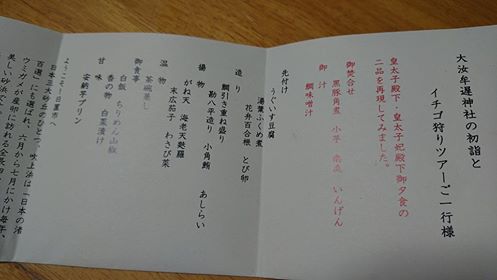 大汝牟遅神社の初詣と
イチゴ狩りツアーご一行様
皇太子殿下・皇太子妃殿下御夕食の
二品を再現してみました。
御焚合せ
黒豚角煮 小芋 南瓜 いんげん
御汁
鯛味噌汁
先付け
うぐいす豆腐
湯葉ふくめ煮
花弁百合根 とび卵
造り
鯛引き重ね盛り
勘八平造り 小角鮪 あしらい
揚物
がね天 海老天麩羅
末広茄子 わさび菜
温物
茶碗蒸し
御食事
白飯 ちりめん山椒
香の物 白菜漬け
甘味
安納芋プリン
ようこそ!日置市へ
日本三大砂丘のひとつ、吹上浜は「日本の渚
百選」にも選ばれ、六月から七月にかけ毎年、
ウミガメが産卵に訪れる
美しい砂浜で